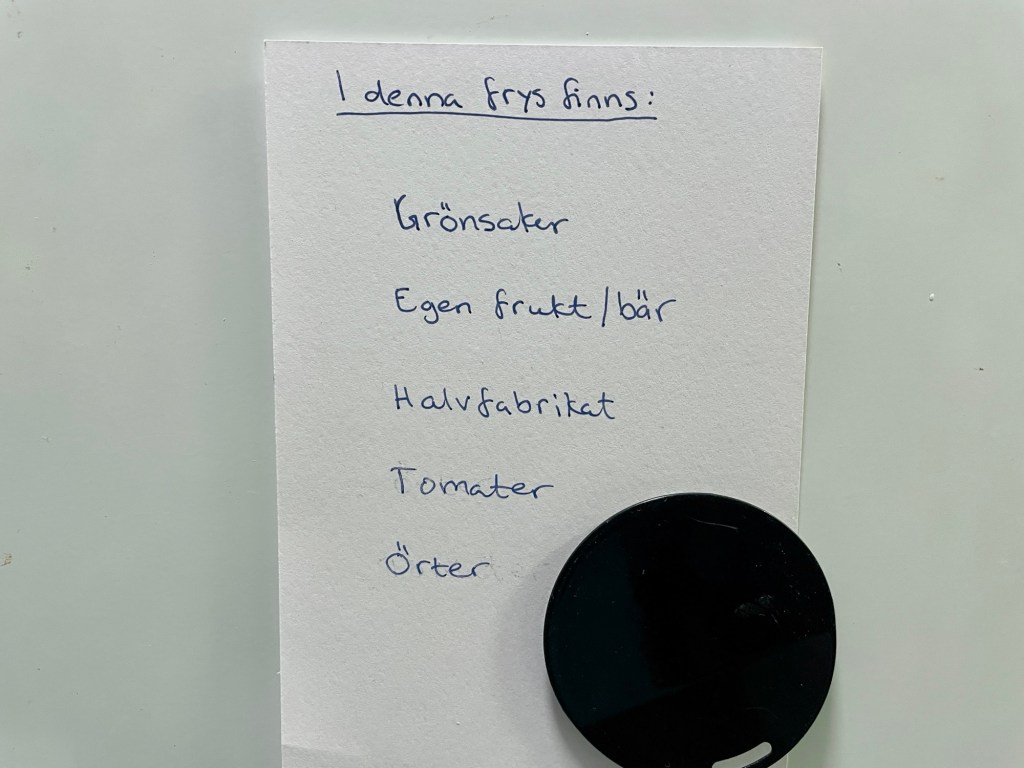 I denna frys finns:
Grönsaker
Egen frukt/bär
Halvfabrikat
Tomater
Örter